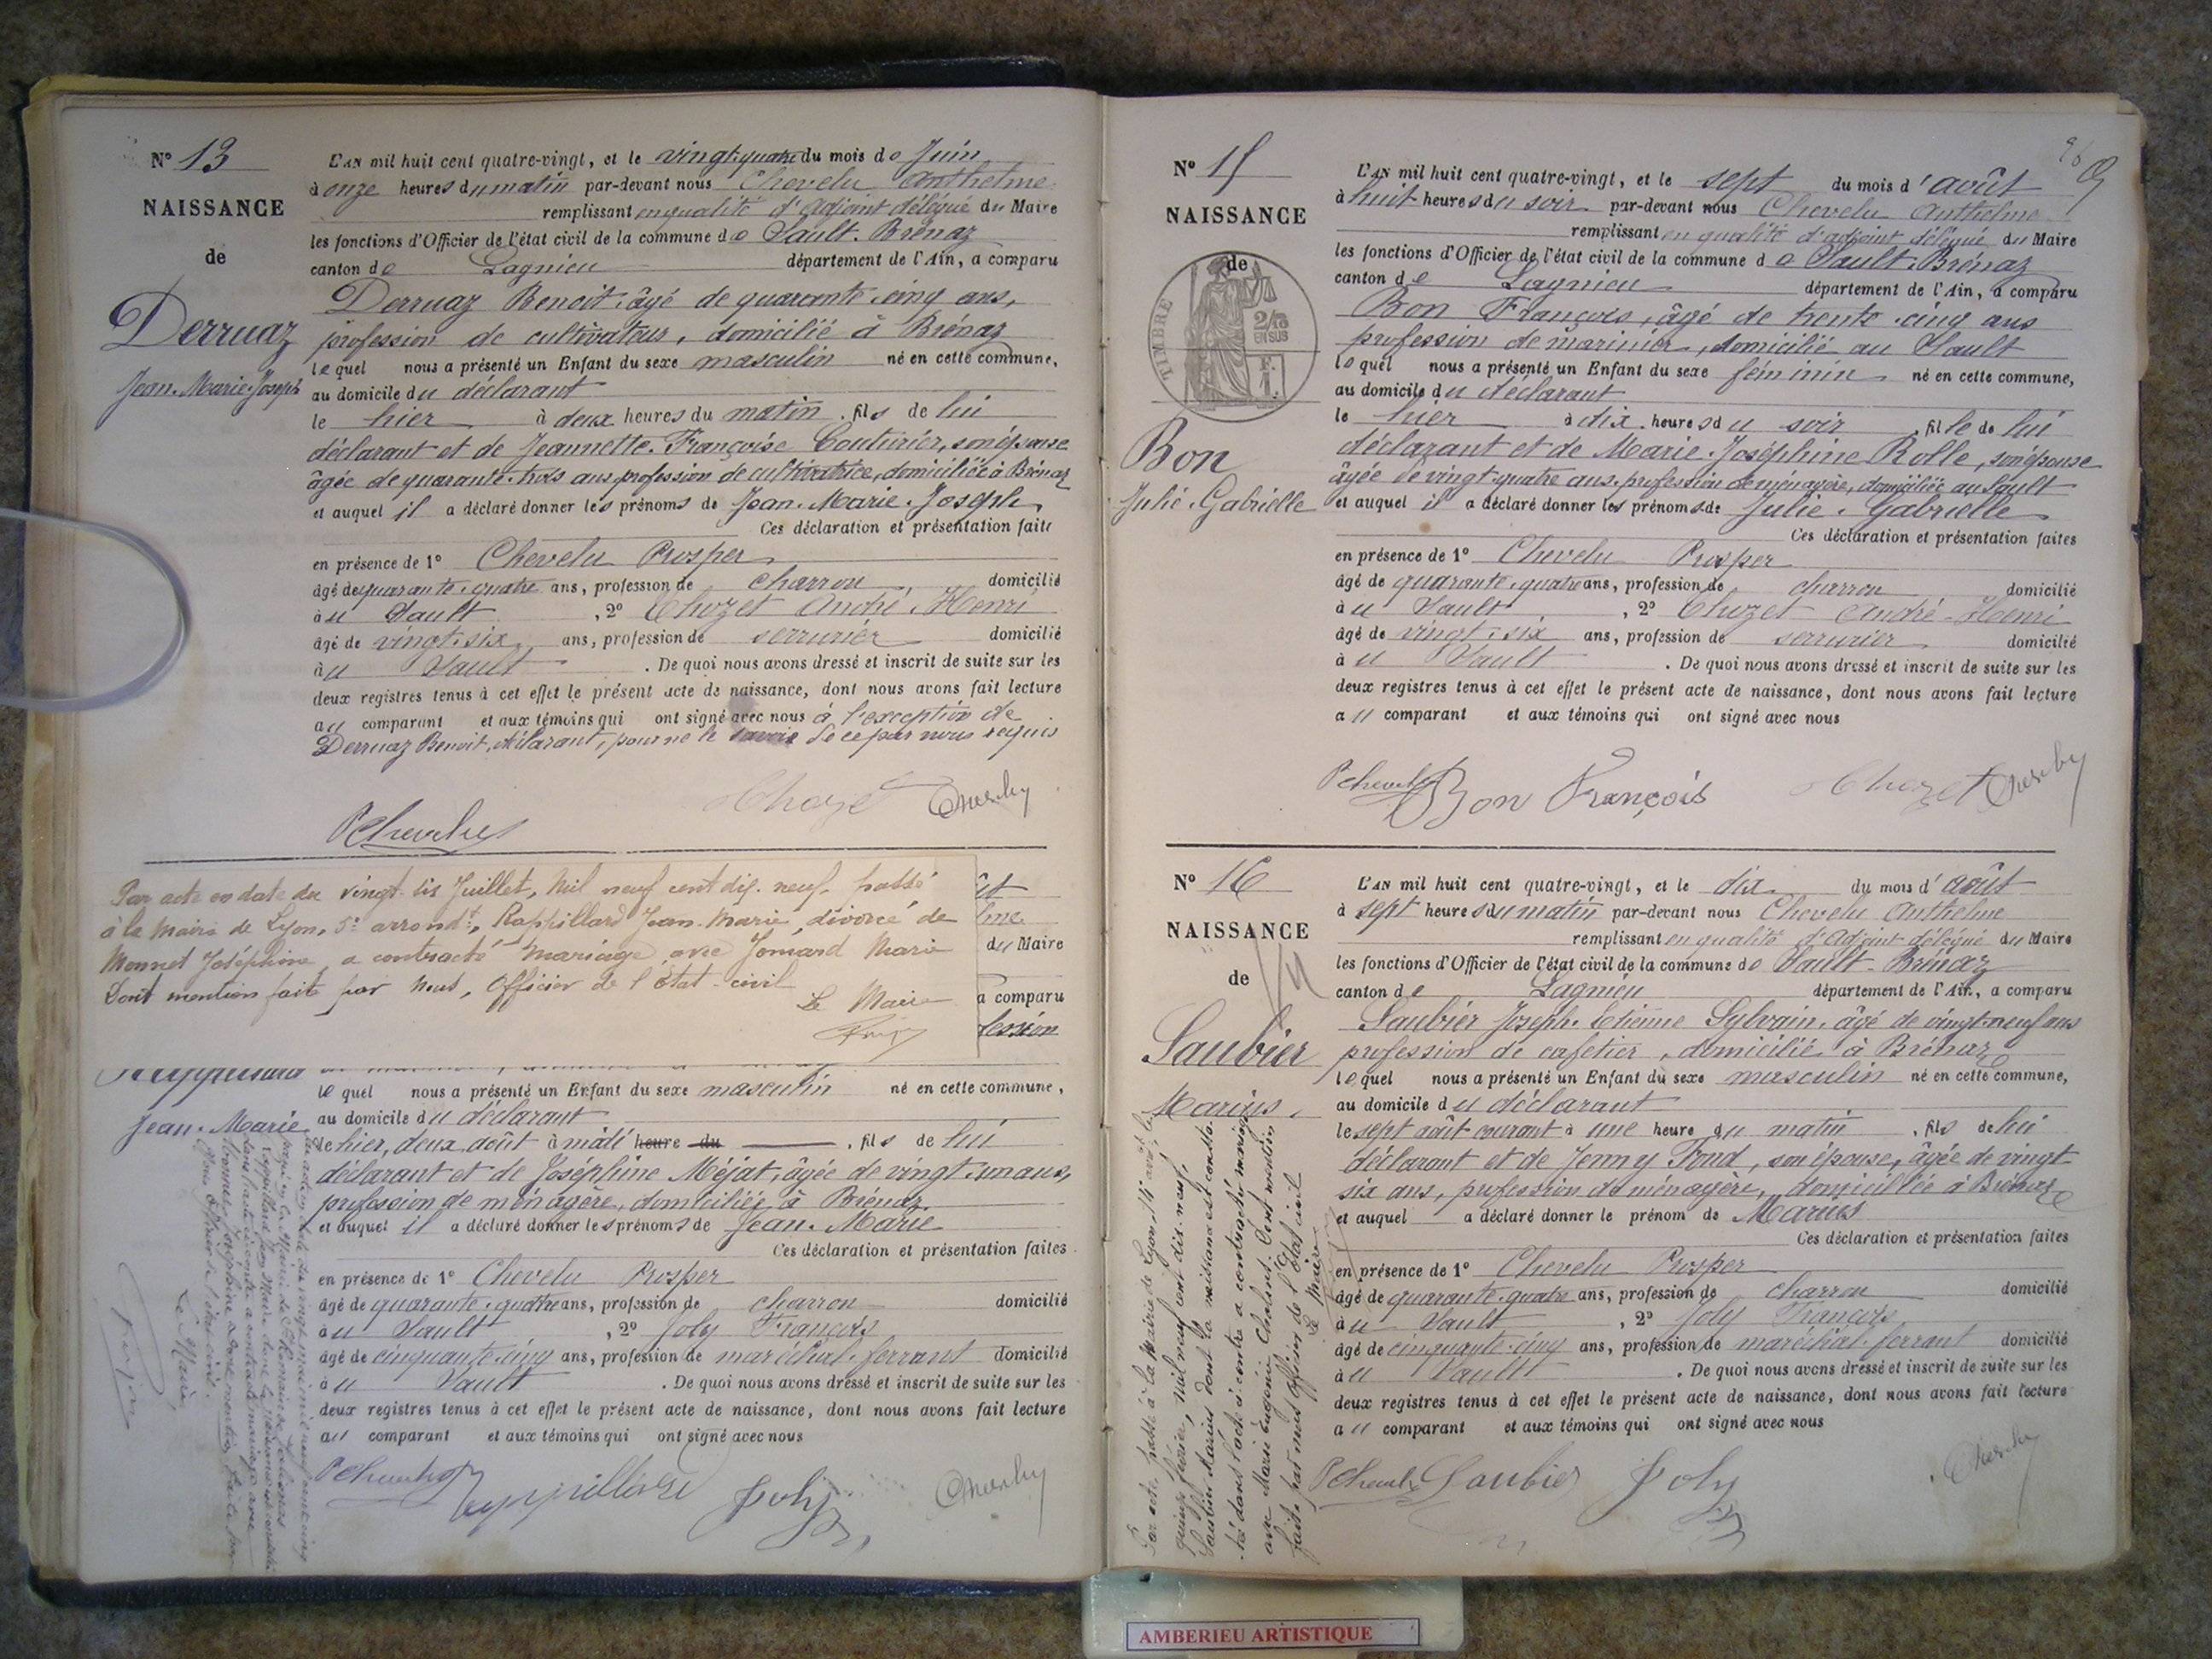 N° 13
NAISSANCE
de
Derruaz
Jean-Marie-Joseph
L'AN mil huit cent quatre-vingt, et le vingt-quatre du mois de Juin
à onze heures du matin par-devant nous Chevelu Anthelme
remplissant en qualité d'Adjoint délégué du Maire
les fonctions d'Officier de l'état civil de la commune de Sault-Brénaz
canton de Lagnieu département de l'Ain, a comparu
Derruaz Benoit, âgé de quarante-cinq ans,
profession de cultivateur, domicilié à Brénaz
lequel nous a présenté un Enfant du sexe masculin né en cette commune,
au domicile du déclarant
le hier à deux heures du matin, fils de lui
déclarant et de Jeannette-Françoise Couturier, son épouse
âgée de quarante-trois ans, profession de cultivatrice, domiciliée à Brénaz
et auquel il a déclaré donner les prénoms de Jean-Marie-Joseph
Ces déclaration et présentation faite
en présence de 1° Chevelu Prosper
âgé de quarante-quatre ans, profession de charron, domicilié
au Sault, 2° Chozet André-Henri
âgé de vingt-six ans, profession de serrurier domicilié
au Sault. De quoi nous avons dressé et inscrit de suite sur les
deux registres tenus à cet effet le présent acte de naissance, dont nous avons fait lecture
au comparant et aux témoins qui ont signé avec nous à l'exception de
Derruaz Benoit, déclarant, pour ne le savoir de ce par nous requis
Chozet
PChevelu
Par acte en date du vingt-six Juillet, Mil neuf cent dix-neuf, passé
à la Mairie de Lyon, 5e arrondt, Rappillard Jean-Marie, divorcé de
Monnet Joséphine, a contracté mariage avec Jomard Marie
Dont mention faite par Nous, Officier de l'Etat-civil
Le Maire
du Maire
a comparu
fession
Jean-Marie
lequel nous a présenté un Enfant du sexe masculin né en cette commune,
au domicile du déclarant
le hier, deux août à midi heure du, fils de lui
déclarant et de Joséphine Méjat, âgée de vingt-un ans,
profession de ménagère, domiciliée à Brénaz
et auquel il a déclaré donner les prénoms de Jean-Marie
Ces déclaration et présentation faites
en présence de 1° Chevelu Prosper
âgé de quarante-quatre ans, profession de charron domicilié
au Sault, 2° Joly François
âgé de cinquante-cinq ans, profession de maréchal-ferrant domicilié
au Sault. De quoi nous avons dressé et inscrit de suite sur les
deux registres tenus à cet effet le présent acte de naissance, dont nous avons fait lecture
au comparant et aux témoins qui ont signé avec nous
Joly
Le Maire,
N° 15
NAISSANCE
de
TIMBRE
2/10
EN SUS
Bon
Julie-Gabrielle
L'AN mil huit cent quatre-vingt, et le sept du mois d'août
à huit heures du soir par-devant nous Chevelu Anthelme
remplissant en qualité d'adjoint délégué du Maire
les fonctions d'Officier de l'état civil de la commune de Sault-Brénaz
canton de Lagnieu département de l'Ain, a comparu
Bon François, âgé de trente-cinq ans
profession de marinier, domicilié au Sault
lequel nous a présenté un Enfant du sexe féminin né en cette commune,
au domicile du déclarant
le hier à dix heures du soir, fille de lui
déclarant et de Marie-Joséphine Rolle, son épouse
âgée de vingt-quatre ans, profession de ménagère, domiciliée au Sault
et auquel il a déclaré donner les prénoms de Julie-Gabrielle
Ces déclaration et présentation faites
en présence de 1° Chevelu Prosper
âgé de quarante-quatre ans, profession de charron domicilié
au Sault, 2° Chozet André-Henri
âgé de vingt-six ans, profession de serrurier domicilié
au Sault. De quoi nous avons dressé et inscrit de suite sur les
deux registres tenus à cet effet le présent acte de naissance, dont nous avons fait lecture
au comparant et aux témoins qui ont signé avec nous
PChevelu Bon François Chozet
N° 16
NAISSANCE
de
Saubier
Marius
L'AN mil huit cent quatre-vingt, et le dix du mois d'août
à sept heures du matin par-devant nous Chevelu Anthelme
remplissant en qualité d'Adjoint délégué du Maire
les fonctions d'Officier de l'état civil de la commune de Sault-Brénaz
canton de Lagnieu département de l'Ain, a comparu
Saubier Joseph-Etienne Sylvain, âgé de vingt-neuf ans
profession de cafetier, domicilié à Brénaz
lequel nous a présenté un Enfant du sexe masculin né en cette commune,
au domicile du déclarant
le sept août courant à une heure du matin, fils de lui
déclarant et de Jenny Fond, son épouse, âgée de vingt-
six ans, profession de ménagère, domiciliée à Brénaz
et auquel a déclaré donner le prénom de Marius
Ces déclaration et présentation faites
en présence de 1° Chevelu Prosper
âgé de quarante-quatre ans, profession de charron domicilié
au Sault, 2° Joly François
âgé de cinquante-cinq ans, profession de maréchal-ferrant domicilié
au Sault. De quoi nous avons dressé et inscrit de suite sur les
deux registres tenus à cet effet le présent acte de naissance, dont nous avons fait lecture
au comparant et aux témoins qui ont signé avec nous
Saubier Joly
Par acte passé à la Mairie de Lyon
quinze février, mil neuf cent dix-neuf,
Saubier Marius dont la naissance est consta-
tée dans l'acte ci-contre a contracté mariage
avec Marie Eugénie Cholmet. Dont mention
faite par nous officier de l'Etat civil
Le Maire
AMBERIEU ARTISTIQUE